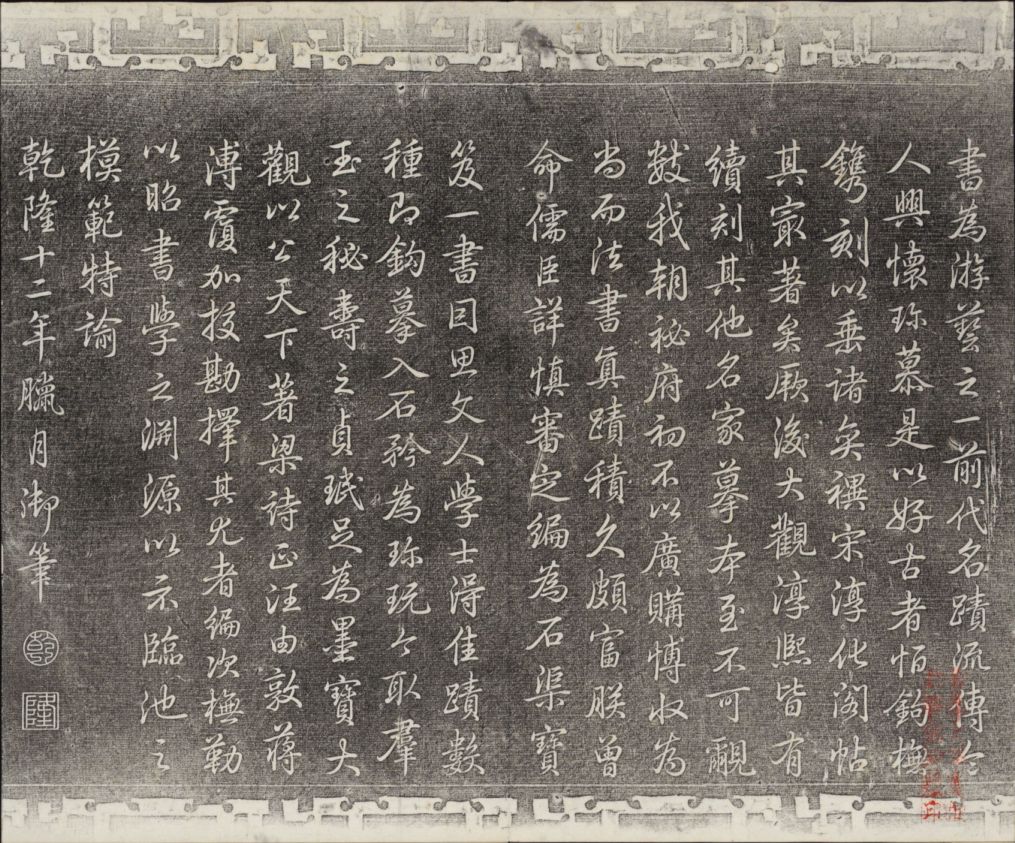 書為游藝之一前代名蹟流傳令
人興懷珎慕是以好古者恆鉤橅
鐫刻以垂諸奕禩宋淳化閣帖
其最著矣厥後大觀淳熙皆有
續刻其他名家摹本至不可覼
數我朝祕府初不以廣購博收為
尚而法書真蹟積久頗富朕曾
命儒臣詳慎審定編為石渠寶
笈一書因思文人學士得佳蹟數
種即鉤摹入石矜為珎玩今取羣
玉之秘壽之貞珉足為墨寶大
觀以公天下著梁詩正汪由敦蔣
溥覆加挍勘擇其尤者編次橅勒
以昭書學之淵源以示臨池之
模範特諭
乾隆十二年臘月御筆
乾
隆